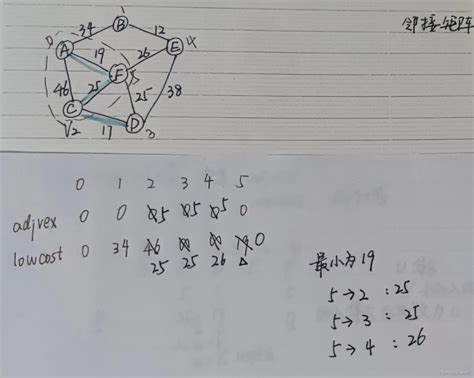 邻接矩阵
34 B 12
0 A 19 26 E 4
46 F 5
25 25 38
C
V2 17 D 3
0 1 2 3 4 5
adjvex 0 0 5 5 5 0
lowcost 0 34 46 19 0
25 25 26
最小为19
5→2 : 25
5→3 : 25
5→4 : 26